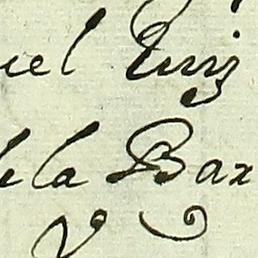 uel Ruiz
de la Bax